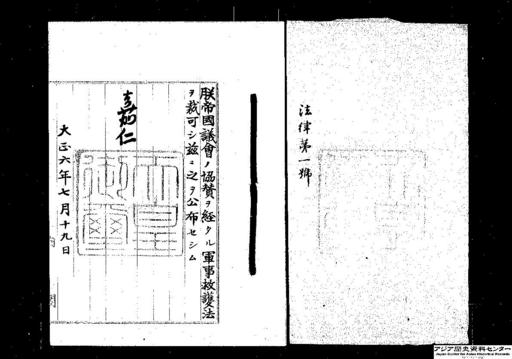 法律第一號
朕帝國議會ノ協賛ヲ經タル軍事救護法
ヲ裁可シ茲ニ之ヲ公布セシム
嘉仁
大正六年七月十九日
アジア歴史資料センター
Japan Center for Asian Historical Records